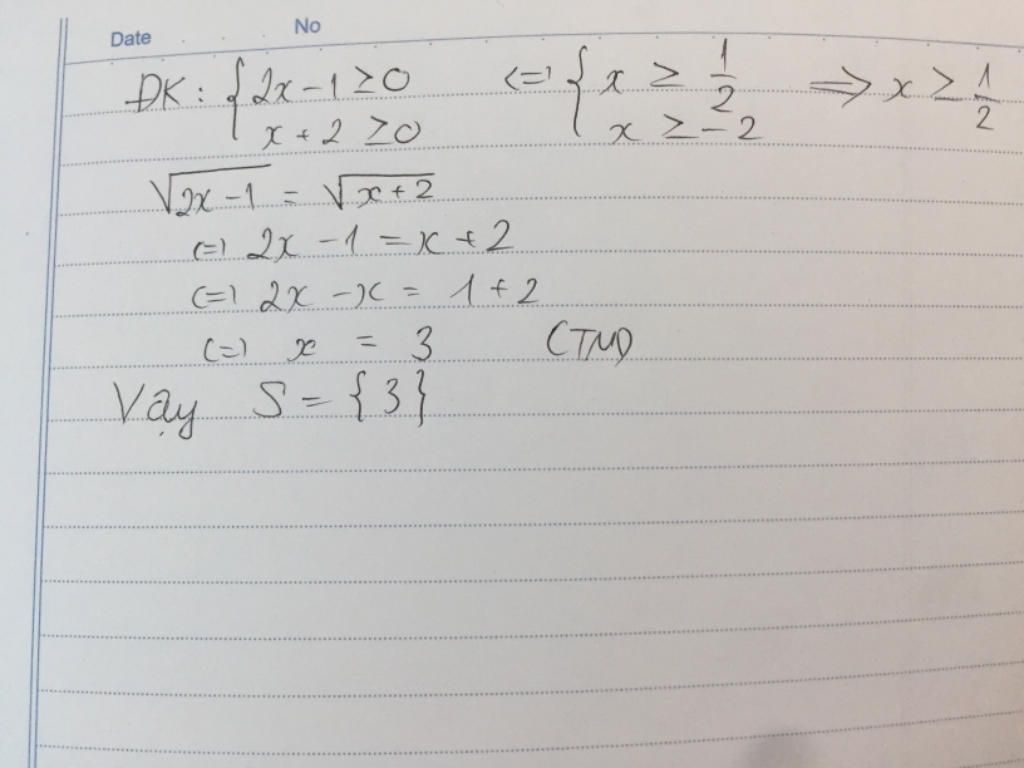 Date No
ĐK: { 2x - 1 ≥ 0 (=) { x ≥ 1/2 ⟹ x ≥ 1/2
x + 2 ≥ 0 x ≥ -2
√(2x - 1) = √(x + 2)
(=) 2x - 1 = x + 2
(=) 2x - x = 1 + 2
(=) x = 3 (TMĐ)
Vậy S = {3}